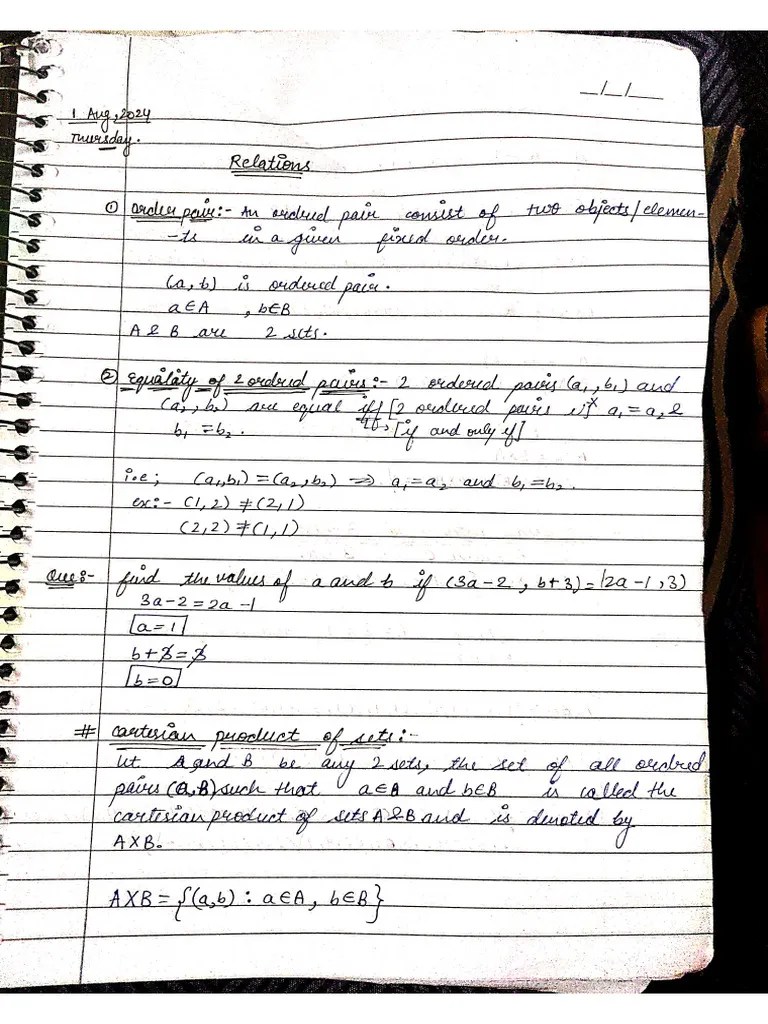 _/_/__
1 Aug, 2024
Thursday.
Relations
① Order pair:- An ordred pair consist of two objects/elemen-
-ts in a given fixed order.
(a, b) is ordered pair.
a∈A , b∈B
A & B are 2 sets.
② Equality of 2 ordred pairs:- 2 ordered pairs (a₁, b₁) and
(a₂, b₂) are equal iff [2 ordered pairs a₁ = a₂ &
b₁ = b₂. [if and only if]
i.e; (a₁, b₁) = (a₂, b₂) ⇒ a₁ = a₂ and b₁ = b₂.
ex:- (1, 2) ≠ (2, 1)
(2, 2) ≠ (1, 1)
Que:- find the values of a and b if (3a-2 , b+3) = (2a-1, 3)
3a-2 = 2a-1
a = 1
b + 3 = 3
b = 0
# Cartesian product of sets:-
let A and B be any 2 sets, the set of all ordred
pairs (a, B) such that a∈A and b∈B is called the
cartesian product of sets A & B and is denoted by
A X B.
A X B = {(a, b) : a∈A, b∈B}